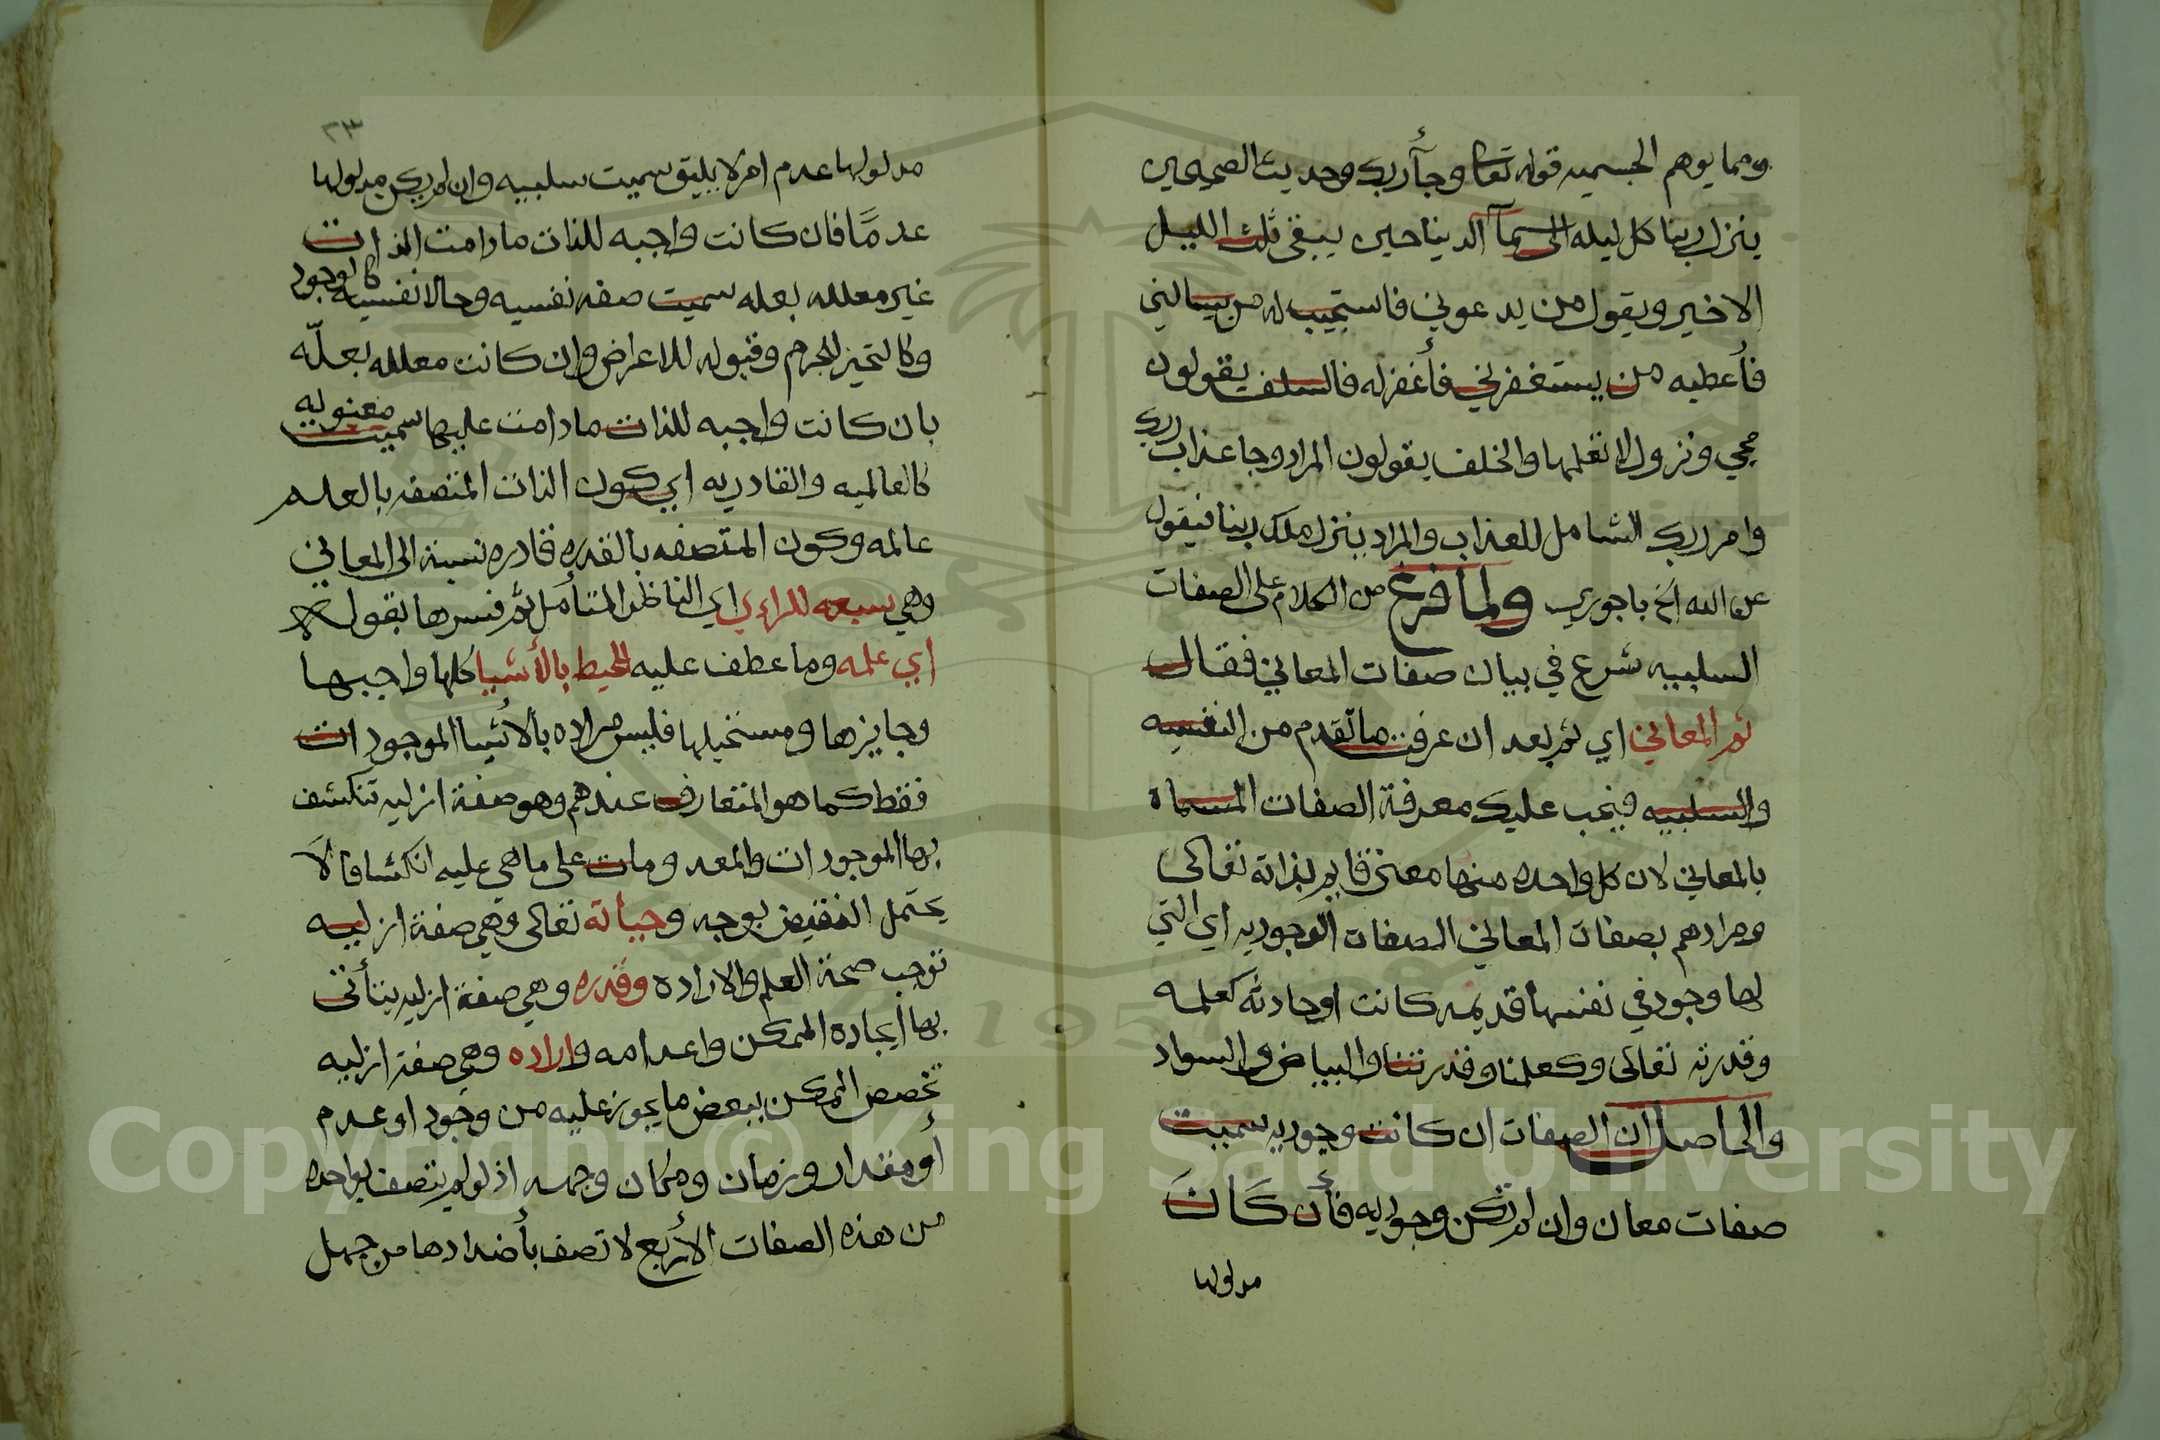 ومما يوهم الجسميه قوله تعالى وجآء ربك وحديث الصحيحين
ينزل ربنا كل ليله الى سمآ الدنيا حين يبقى ثلث الليل
الاخير ويقول من يدعوني فاستجيب له من يسالني
فأعطيه من يستغفرني فأغفر له فالسلف يقولون
مجي ونزول لا نعلمها والخلف يقولون المراد وجا عذاب ربك
وامر ربك الشامل للعذاب والمراد ينزل ملك ربنا فيقول
عن الله الخ باجوري ولما فرغ من الكلام على الصفات
السلبيه شرع في بيان صفات المعاني فقال
ثم المعاني اي ثم بعد ان عرفت ما تقدم من النفسيه
والسلبيه فيجب عليك معرفة الصفات المسماة
بالمعاني لان كل واحده منها معنى قايم بذاته تعالى
ومرادهم بصفات المعاني الصفات الوجوديه اي التي
لها وجود في نفسها قديمه كانت او حادثه كعلمه
وقدرته تعالى وكعلمنا وقدرتنا والبياض والسواد
والحاصل ان الصفات ان كانت وجوديه سميت
صفات معان وان لم تكن وجوديه فأن كَانَ
مدلولها
٢٣
مدلولها عدم امر لا يليق سميت سلبيه وان لم يكن مدلولها
عدمًا فان كانت واجبه للذات ما دامت الذات
غير معلله بعله سميت صفه نفسيه وحالا نفسيه كالوجود
وكالتحيز للجرم وقبوله للاعراض وان كانت معلله بعلّه
بان كانت واجبه للذات ما دامت عليها سميت معنويه
كالعالميه والقادريه اي كون الذات المتصفه بالعلم
عالمه وكون المتصفه بالقدره قادره نسبة الى المعاني
وهي سبعه للراءي اي الناظر المتأمل ثم فسرها بقوله
اي علمه وما عطف عليه المحيط بالأشيا كلها واجبها
وجايزها ومستحيلها فليس مراده بالأشيا الموجودات
فقط كما هو المتعارف عندهم وهو صفة ازليه تنكشف
بها الموجودات والمعدومات على ما هى عليه انكشافا لَا
يحتمل النقيض بوجه وحياته تعالى وهي صفة ازليه
توجب صحة العلم والاراده وقدره وهي صفة ازليه يتأتى
بها ايجاده الممكن واعدامه واراده وهي صفة ازليه
تخصص الممكن ببعض ما يجوز عليه من وجود او عدم
أو مقدار وزمان ومكان وجهه اذ لو لم يتصف بواحده
من هذه الصفات الأربع لاتصف بأضدادها من جهل
Copyright © King Saud University
1957